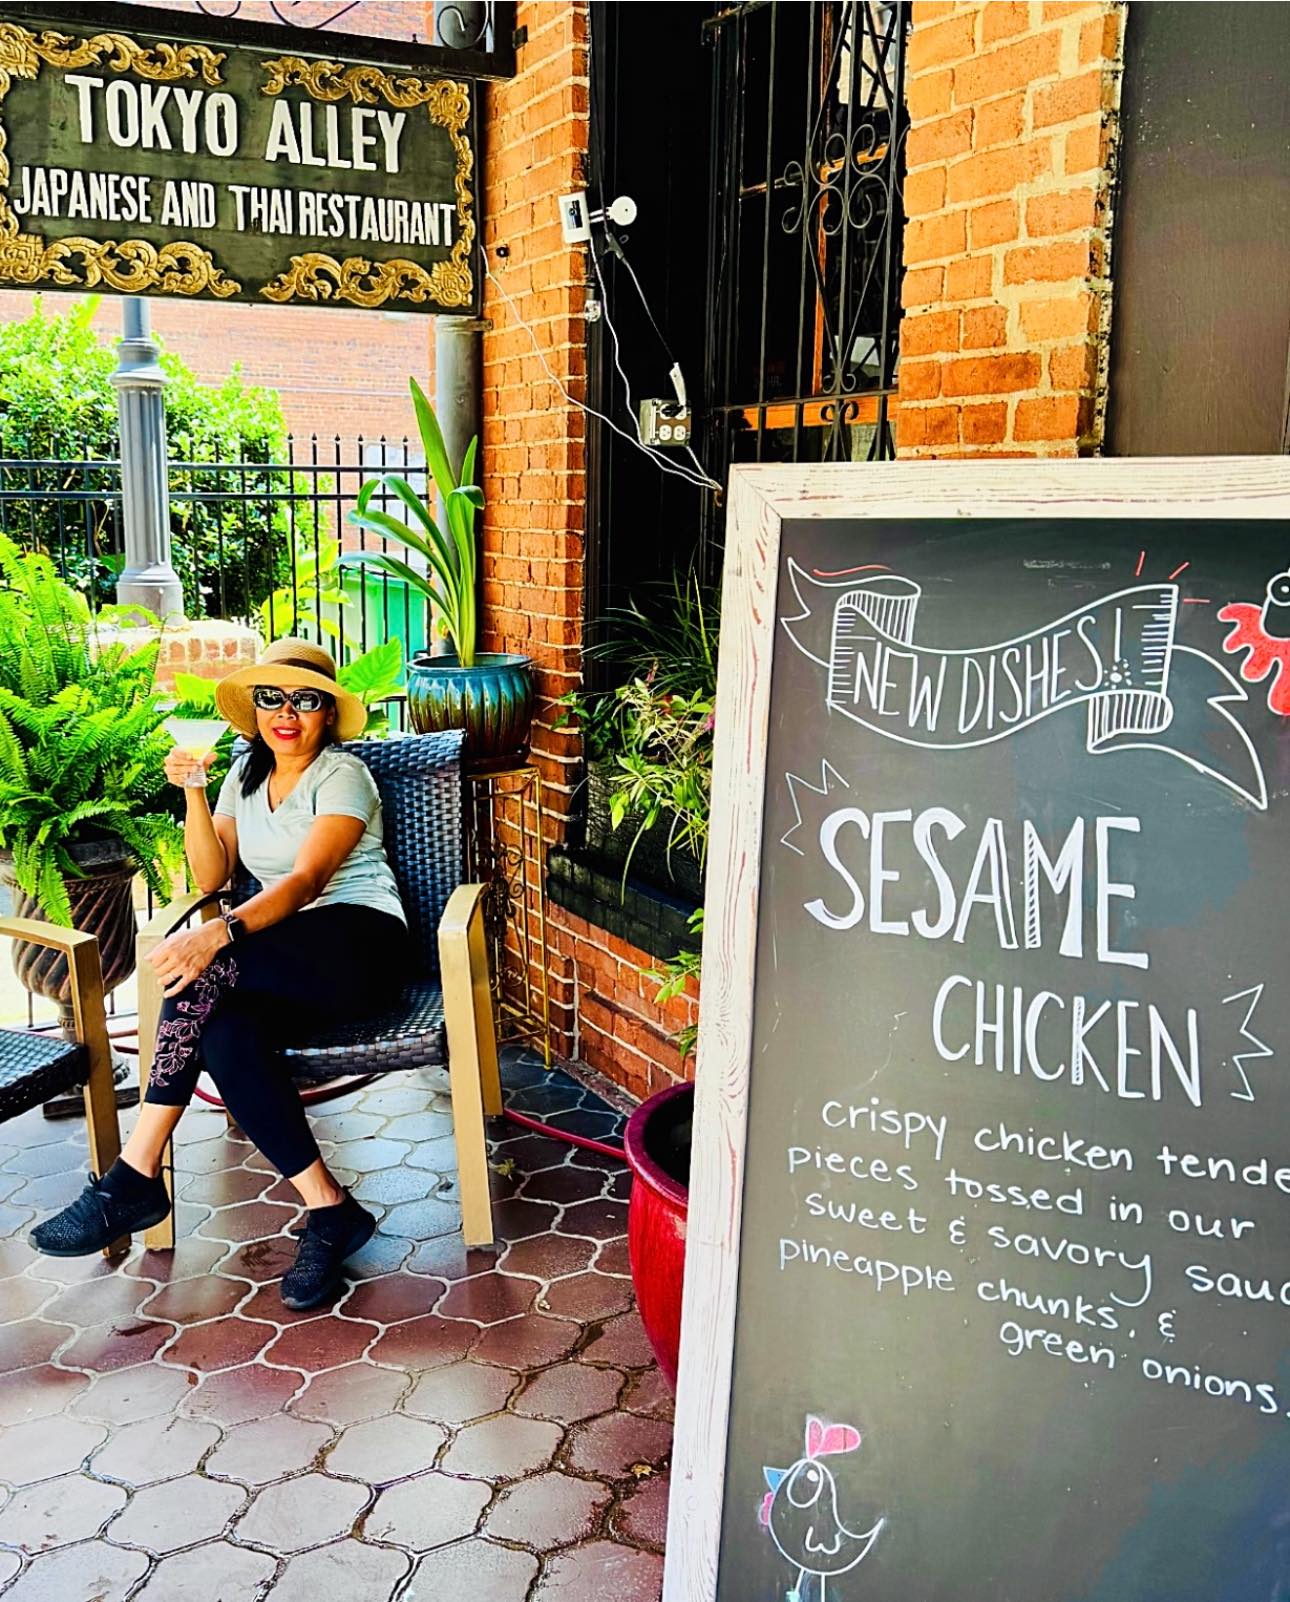 TOKYO ALLEY
JAPANESE AND THAI RESTAURANT
NEW DISHES!
SESAME
CHICKEN
crispy chicken tende
pieces tossed in our
sweet & savory sauc
pineapple chunks, &
green onions.